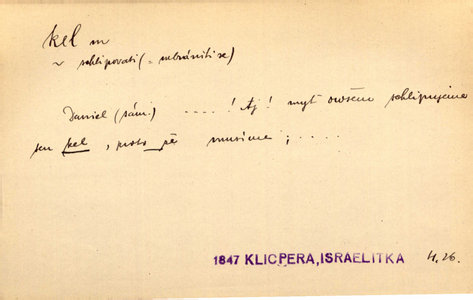 kel m
~ schlipovati (= nebrániti se)
Daniel (sám.) ....! Aj! nyť owšem schlipujeme
jen kel, proto
musíme; ....
1847 KLICPERA, ISRAELITKA 4.26.